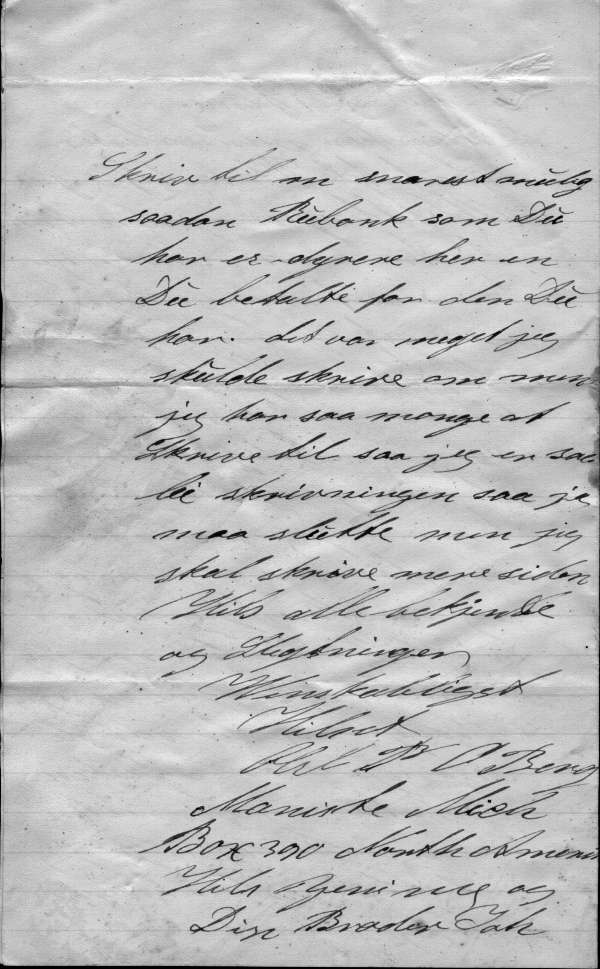 Skriv til m snarest mulig
saadan som Du
har er dyrere her en
Du betalte for den Du
har. det var meget jeg
skulde skrive om men
jeg har saa mange at
Skrive til saa jeg er saa
lei skrivningen saa je
maa slutte men jeg
skal skrive mere siden
Hils alle bekjendte
og Slegtninger
Winskabeligst
Hilset
Berg
Maniste Mich
Box 390 North Ameri
Hils og
Din Broder Joh